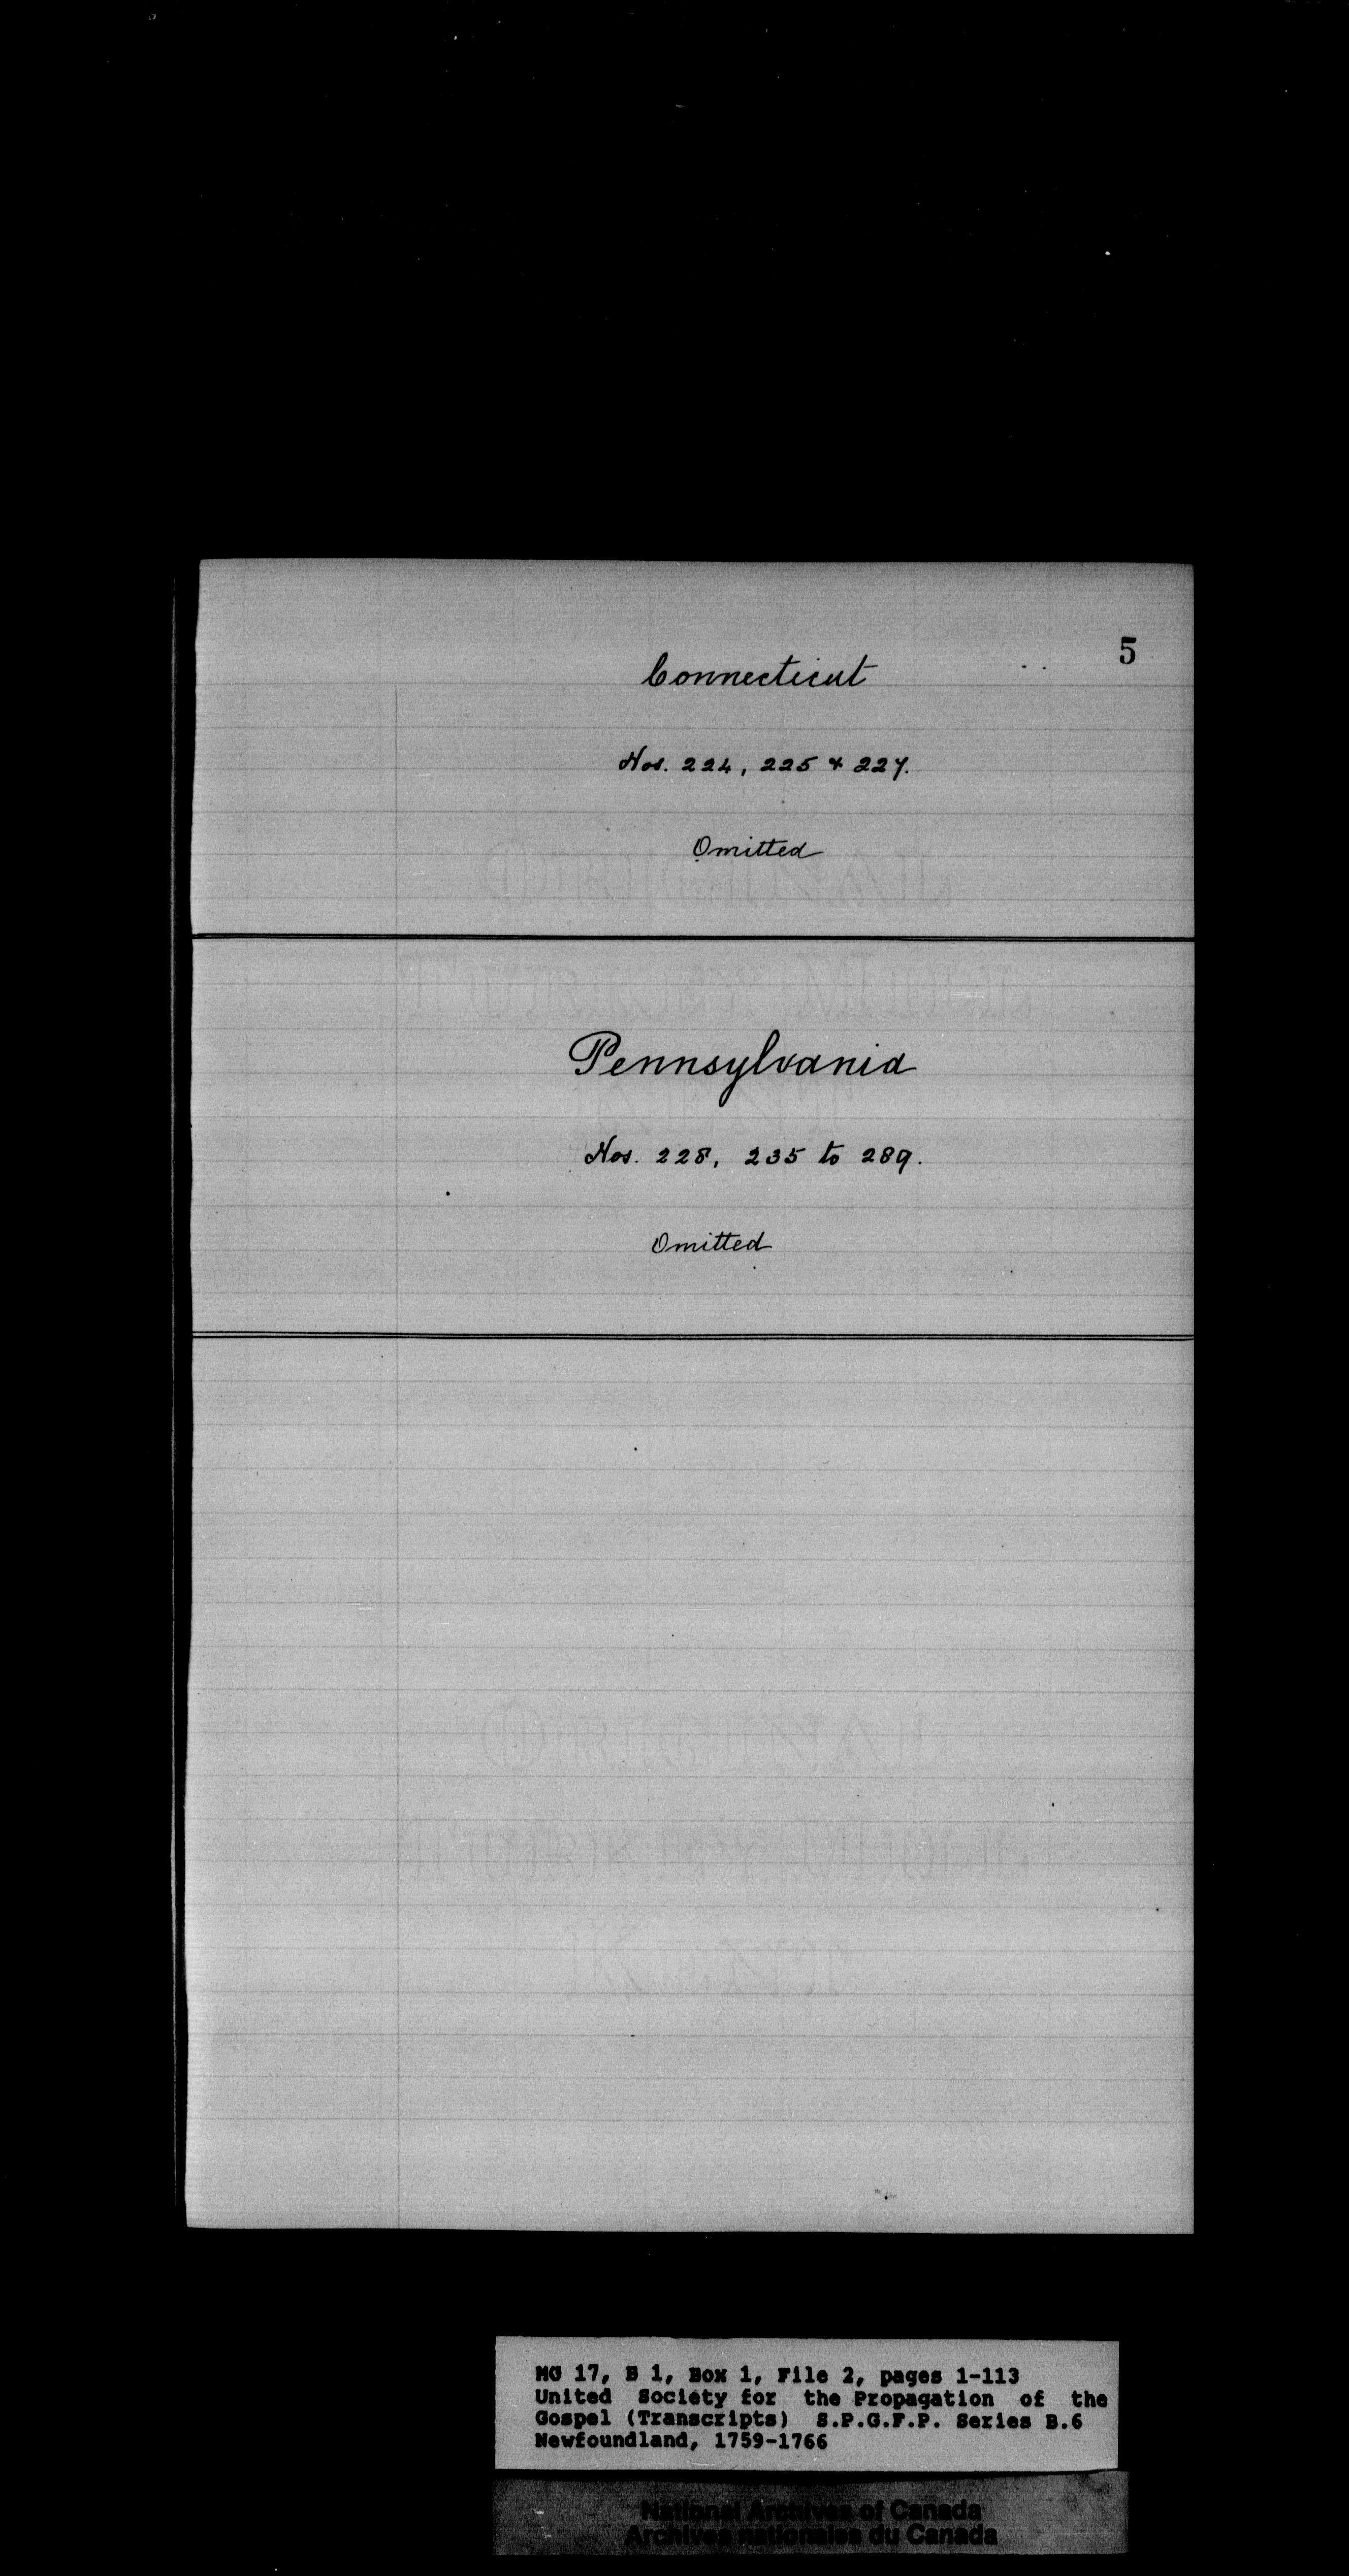 5
Connecticut
Nos. 224, 225 & 227.
Omitted
Pennsylvania
Nos. 228, 235 to 289.
Omitted
MG 17, B 1, Box 1, File 2, pages 1-113
United Society for the Propagation of the
Gospel (Transcripts) S.P.G.F.P. Series B.6
Newfoundland, 1759-1766
National Archives of Canada
Archives nationales du Canada